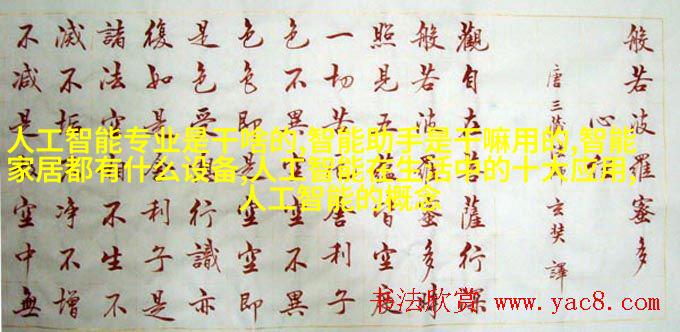 般若波羅蜜多
心經
唐三藏玄奘譯
觀自在菩薩行深
般若波羅蜜多時
照見五蘊皆空度
一切苦厄舍利子
色不異空空不異
色色即是空空即
是色受想行識亦
復如是舍利子是
諸法空相不生不
滅不垢不淨不增
不減是故空中無
人工智能专业是干啥的,智能助手是干嘛用的,智能
家居都有什么设备,人工智能在生活中的十大应用,
人工智能的概念
书法欣赏 www.yac8.com